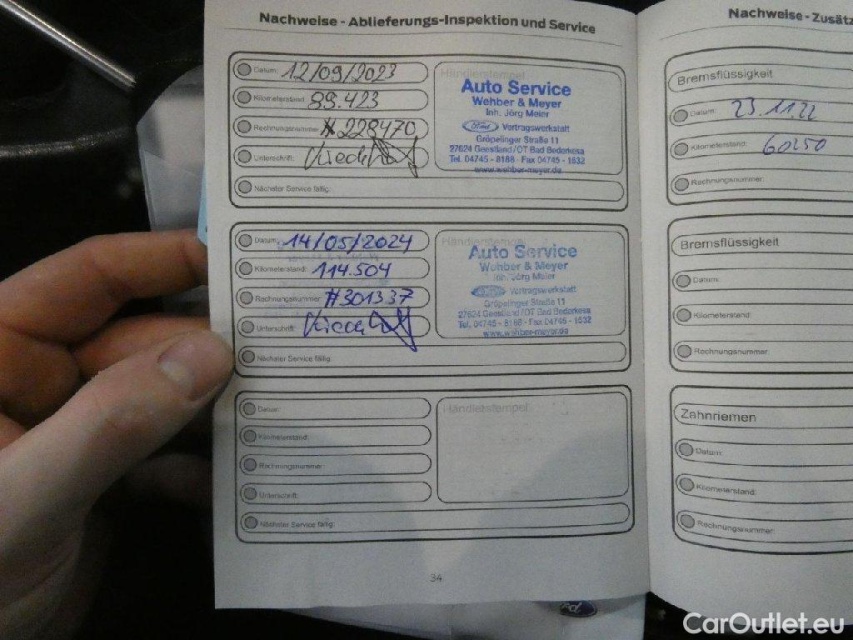 Nachweise - Ablieferungs-Inspektion und Service
Datum: 12/09/2023
Kilometerstand: 89.423
Rechnungsnummer: # 228470
Unterschrift:
Nächster Service fällig:
Händlerstempel
Auto Service
Wehber & Meyer
Inh. Jörg Meier
Ford Vertragswerkstatt
Gröpelinger Straße 11
27624 Geestland/OT Bad Bederkesa
Tel. 04745 - 8168 - Fax 04745 - 1632
www.wehber-meyer.de
Datum: 14/05/2024
Kilometerstand: 114.504
Rechnungsnummer: #301337
Unterschrift:
Nächster Service fällig:
Händlerstempel
Auto Service
Wehber & Meyer
Inh. Jörg Meier
Ford Vertragswerkstatt
Gröpelinger Straße 11
27624 Geestland/OT Bad Bederkesa
Tel. 04745 - 8168 - Fax 04745 - 1632
www.wehber-meyer.de
Datum:
Kilometerstand:
Rechnungsnummer:
Unterschrift:
Nächster Service fällig:
Händlerstempel
34
Nachweise - Zusätz
Bremsflüssigkeit
Datum: 23.11.22
Kilometerstand: 60250
Rechnungsnummer:
Bremsflüssigkeit
Datum:
Kilometerstand:
Rechnungsnummer:
Zahnriemen
Datum:
Kilometerstand:
Rechnungsnummer:
CarOutlet.eu